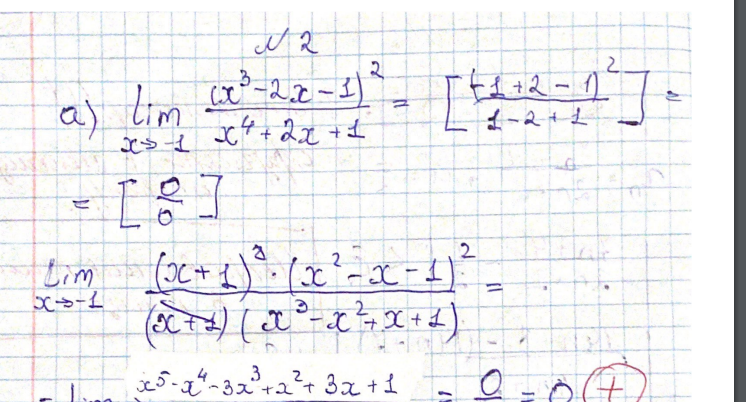 № 2
a) lim x→-1 (x³-2x-1)² / x⁴+2x+1 = [(-1+2-1)² / 1-2+1] =
= [0/0]
lim x→-1 (x+1)² · (x²-x-1)² / (x+1)(x³-x²+x+1) =
= lim x⁵-x⁴-3x³+x²+3x+1 = 0 = 0 +